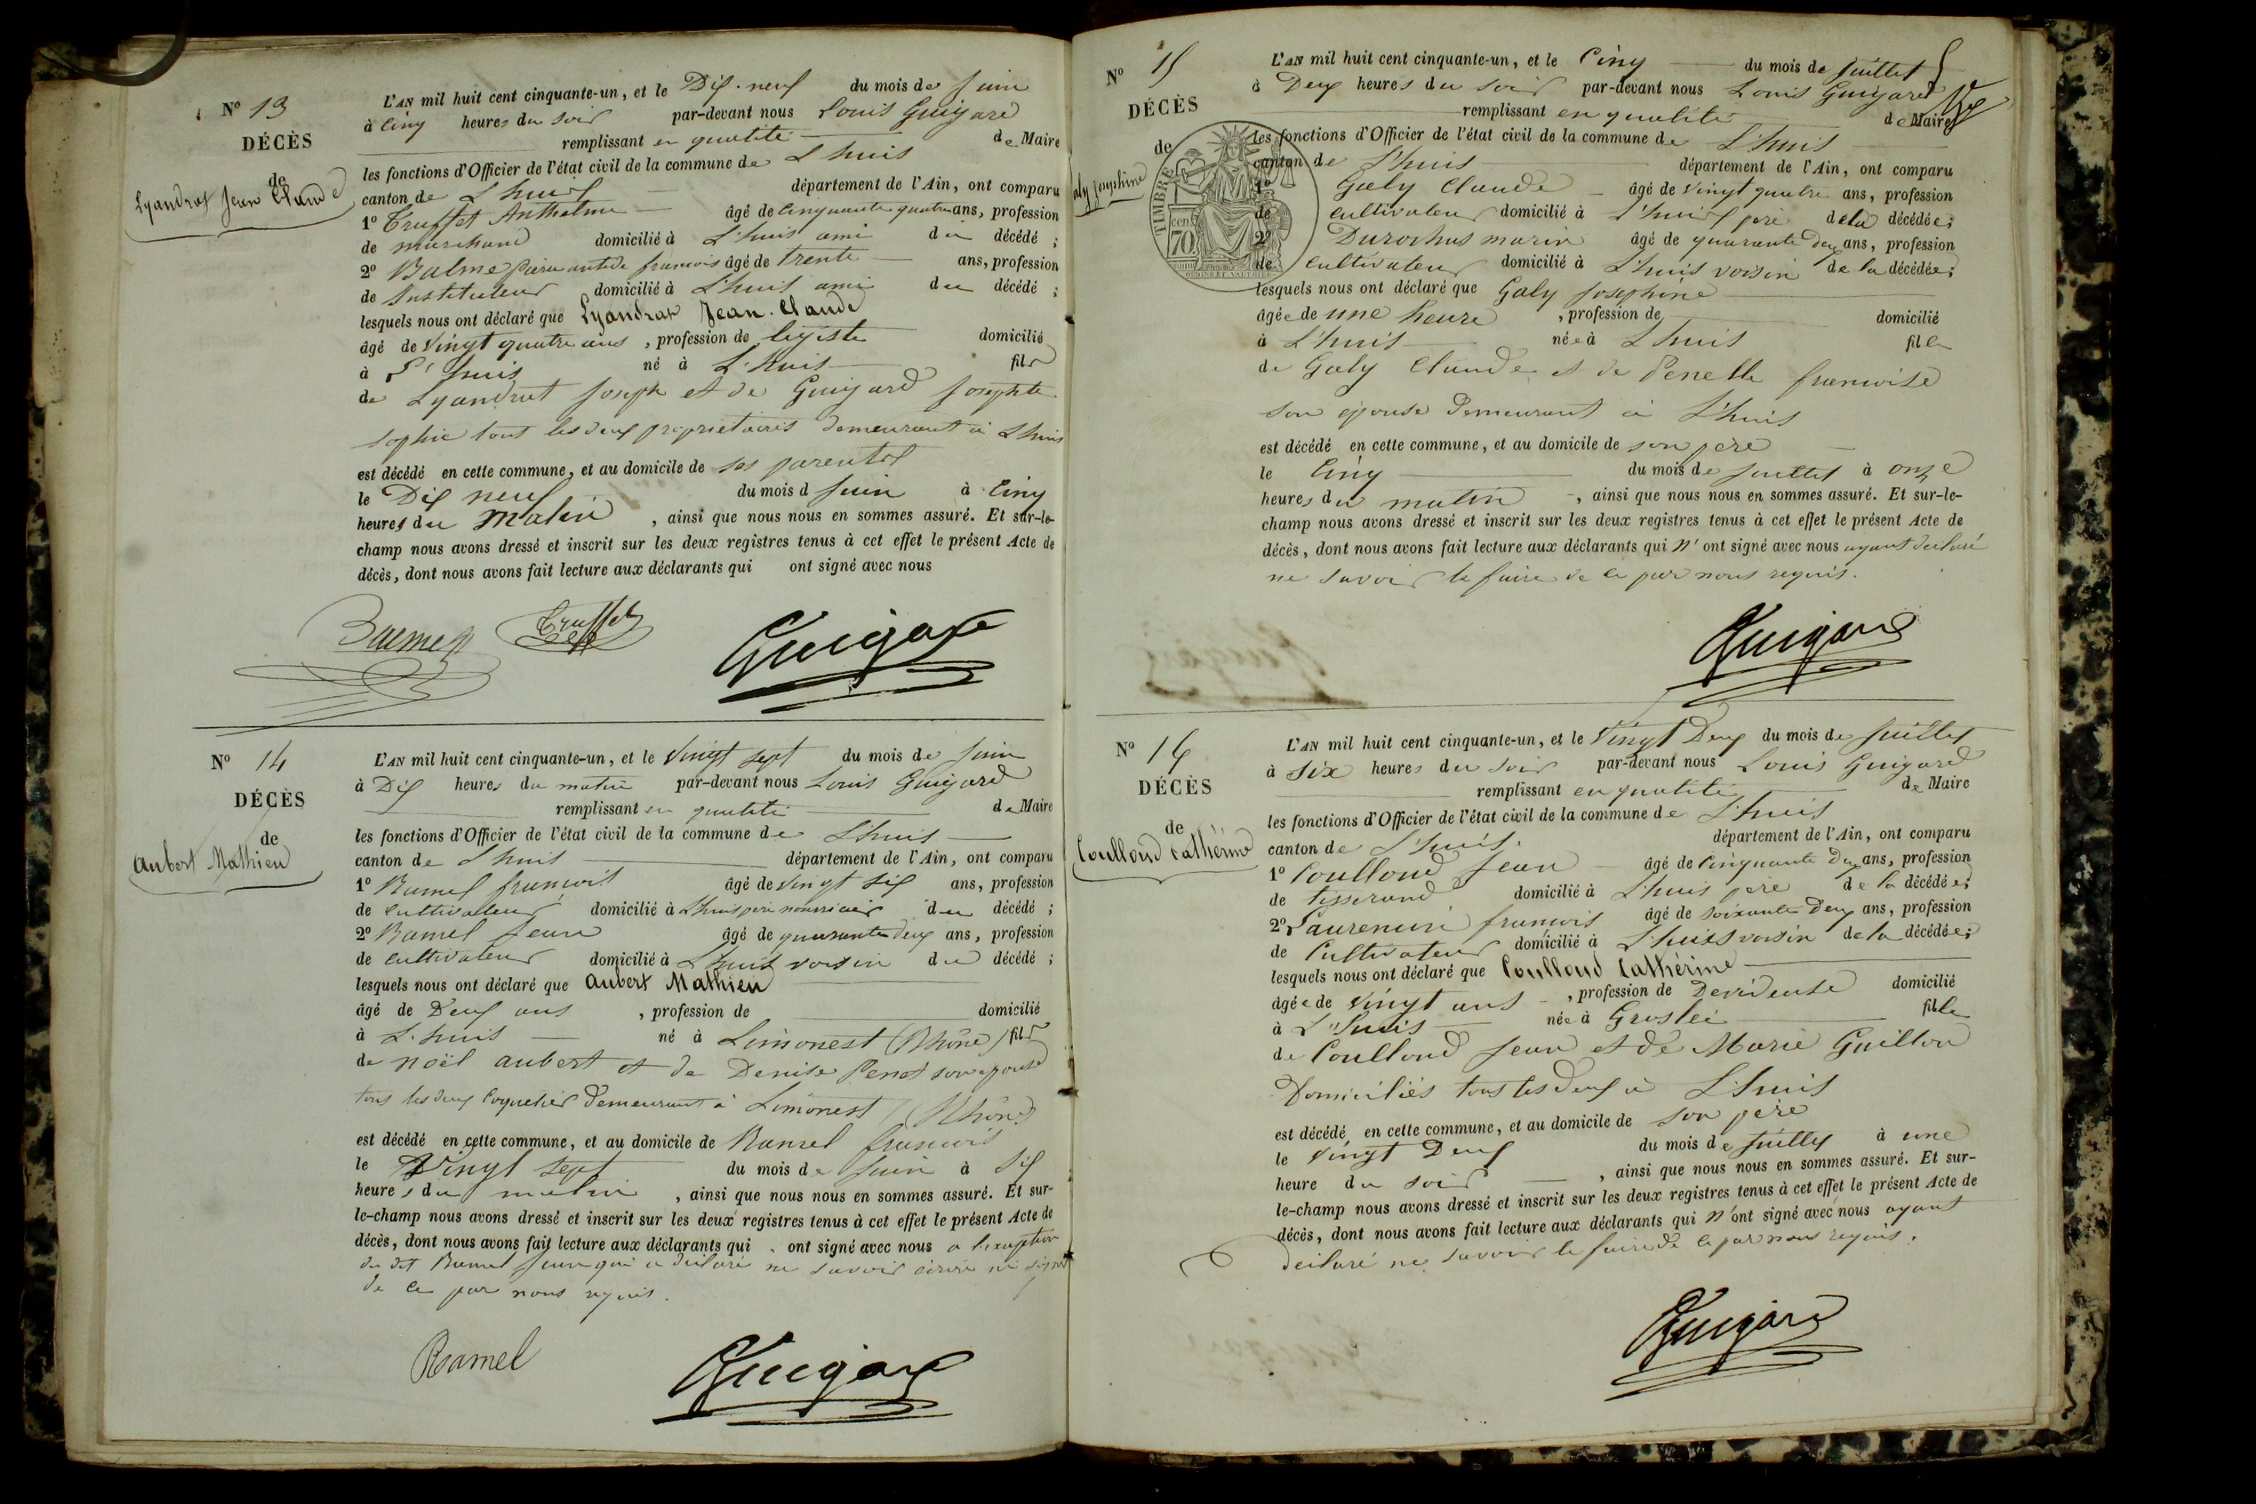 N° 13
DÉCÈS
de
Lyandrat Jean Claude
L'AN mil huit cent cinquante-un, et le Dix-neuf du mois de Juin
à Cinq heures du soir par-devant nous Louis Guigard
remplissant en qualité de Maire
les fonctions d'Officier de l'état civil de la commune de L'huis
canton de L'huis département de l'Ain, ont comparu
1° Truffet Anthelme âgé de Cinquante quatre ans, profession
de marchand domicilié à L'huis ami du décédé ;
2° Balme françois âgé de trente ans, profession
de Instituteur domicilié à L'huis ami du décédé ;
lesquels nous ont déclaré que Lyandrat Jean-Claude
âgé de Vingt quatre ans, profession de légiste domicilié
à L'huis né à L'huis fils
de Lyandrat Joseph et de Guigard Josephte
Sophie tout les deux propriétaires demeurant à L'huis
est décédé en cette commune, et au domicile de ses parents
le Dix neuf du mois d Juin à Cinq
heures du matin, ainsi que nous nous en sommes assuré. Et sur-le-
champ nous avons dressé et inscrit sur les deux registres tenus à cet effet le présent Acte de
décès, dont nous avons fait lecture aux déclarants qui ont signé avec nous
Balme Truffet Guigard
N° 14
DÉCÈS
de
Aubert Mathieu
L'AN mil huit cent cinquante-un, et le Vingt sept du mois de Juin
à Dix heures du matin par-devant nous Louis Guigard
remplissant en qualité de Maire
les fonctions d'Officier de l'état civil de la commune de L'huis
canton de L'huis département de l'Ain, ont comparu
1° Ramel françois âgé de vingt six ans, profession
de cultivateur domicilié à L'huis père nourricier du décédé ;
2° Ramel Jean âgé de quarante deux ans, profession
de cultivateur domicilié à L'huis voisin du décédé ;
lesquels nous ont déclaré que Aubert Mathieu
âgé de Deux ans, profession de domicilié
à L'huis né à Limonest (Rhône) fils
de noël aubert et de Denise Penet son épouse
tous les deux Coquetier demeurant à Limonest (Rhône)
est décédé en cette commune, et au domicile de Ramel françois
le Vingt sept du mois de Juin à Six
heures du matin, ainsi que nous nous en sommes assuré. Et sur-
le-champ nous avons dressé et inscrit sur les deux registres tenus à cet effet le présent Acte de
décès, dont nous avons fait lecture aux déclarants qui ont signé avec nous a l'exception
du dit Ramel Jean qui a déclaré ne savoir écrire ni signer
de ce par nous requis.
Ramel Guigard
N° 15
DÉCÈS
de
Galy Josephine
TIMBRE
70 cen
L'AN mil huit cent cinquante-un, et le Cinq du mois de Juillet
à Deux heures du soir par-devant nous Louis Guigard
remplissant en qualité de Maire
les fonctions d'Officier de l'état civil de la commune de L'huis
canton de L'huis département de l'Ain, ont comparu
1° Galy Claude âgé de Vingt quatre ans, profession
de cultivateur domicilié à L'huis père de la décédée ;
2° Durochas marin âgé de quarante deux ans, profession
de cultivateur domicilié à L'huis voisin de la décédée ;
lesquels nous ont déclaré que Galy Josephine
âgée de une heure, profession de domicilié
à L'huis née à L'huis fille
de Galy Claude et de Penelle francoise
son épouse Demeurant à L'huis
est décédé en cette commune, et au domicile de son père
le Cinq du mois de Juillet à onze
heures du matin, ainsi que nous nous en sommes assuré. Et sur-le-
champ nous avons dressé et inscrit sur les deux registres tenus à cet effet le présent Acte de
décès, dont nous avons fait lecture aux déclarants qui n'ont signé avec nous ayant déclaré
ne savoir le faire de ce par nous requis.
Guigard
N° 16
DÉCÈS
de
Coulloud Cathérine
L'AN mil huit cent cinquante-un, et le Vingt Deux du mois de Juillet
à Six heures du soir par-devant nous Louis Guigard
remplissant en qualité de Maire
les fonctions d'Officier de l'état civil de la commune de L'huis
canton de L'huis. département de l'Ain, ont comparu
1° Coulloud Jean âgé de Cinquante deux ans, profession
de tisserand domicilié à L'huis père de la décédée ;
2° Laurencin françois âgé de soixante Deux ans, profession
de Cultivateur domicilié à L'huis voisin de la décédée ;
lesquels nous ont déclaré que Coulloud Cathérine
âgée de Vingt ans, profession de Devideuse domicilié
à L'huis née à Groslée fille
de Coulloud Jean et de Marie Guillon
Domiciliés tous les deux à L'huis
est décédé en cette commune, et au domicile de son père
le Vingt Deux du mois de Juillet à une
heure du soir, ainsi que nous nous en sommes assuré. Et sur-
le-champ nous avons dressé et inscrit sur les deux registres tenus à cet effet le présent Acte de
décès, dont nous avons fait lecture aux déclarants qui n'ont signé avec nous ayant
déclaré ne savoir le faire de ce par nous requis.
Guigard